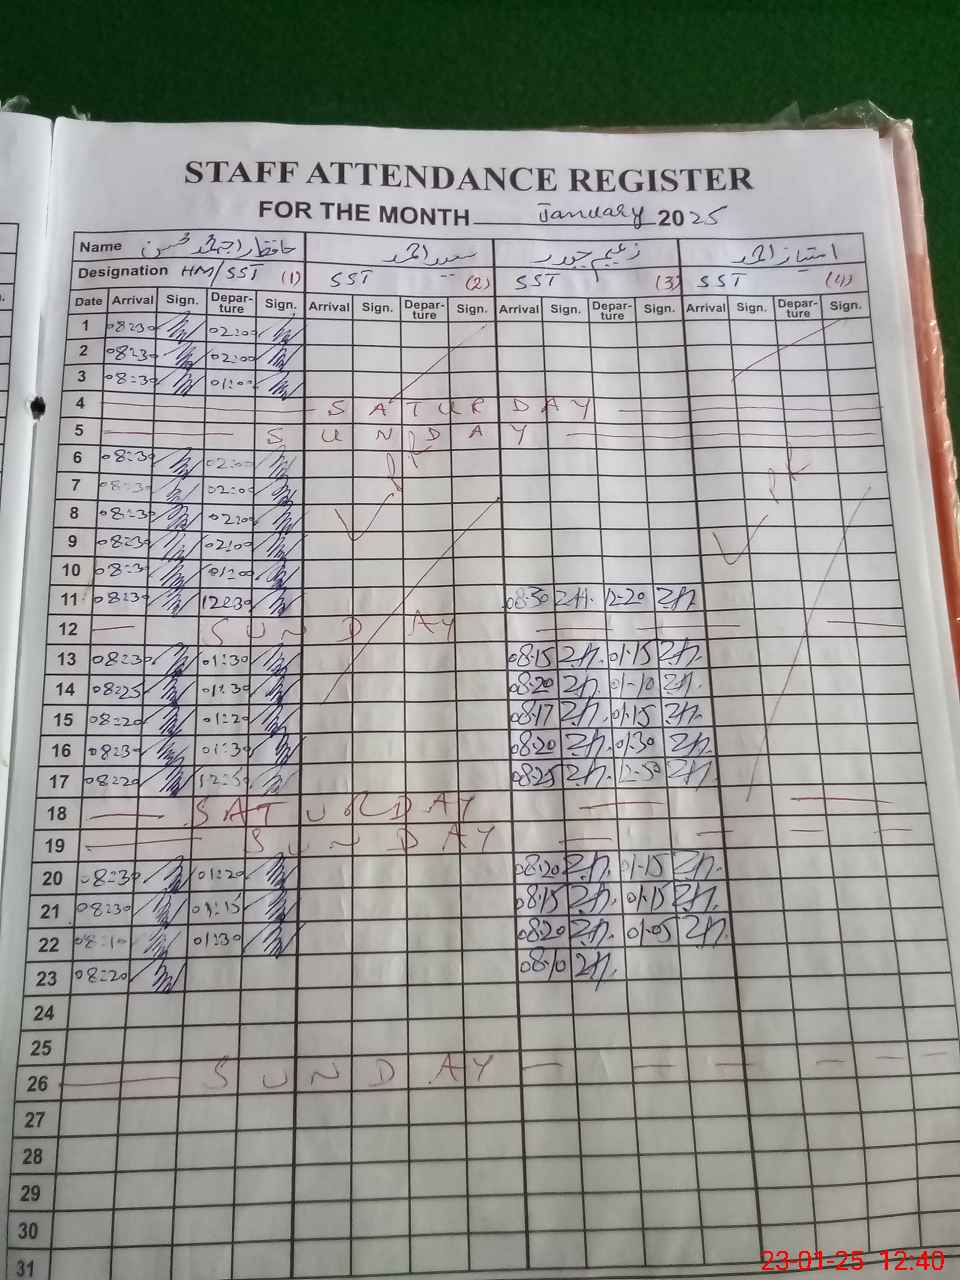 STAFF ATTENDANCE REGISTER
FOR THE MONTH January 2025
Name حافظ راجہ محسن سعید احمد زعیم حیدر امتیاز احمد
Designation HM/SST (1) SST (2) SST (3) SST (4)
Date Arrival Sign. Depar-ture Sign. Arrival Sign. Depar-ture Sign. Arrival Sign. Depar-ture Sign. Arrival Sign. Depar-ture Sign.
1 08:30 02:00
2 08:30 02:00
3 08:30 01:00
4 SATURDAY
5 SUNDAY
6 08:30 02:00
7 08:30 02:00
8 08:30 02:00
9 08:30 02:00
10 08:30 01:00
11 08:30 12:30 08:30 12-20
12 SUNDAY
13 08:30 01:30 08:15 01-15
14 08:25 01:30 08:20 01-10
15 08:20 01:20 08:17 01-15
16 08:30 01:30 08:20 01-30
17 08:20 12:50 08:25 12-50
18 SATURDAY
19 SUNDAY
20 08:30 01:20 08:20 01-15
21 08:30 01:15 08:15 01-15
22 08:10 01:30 08:20 01-05
23 08:20 08:10
24
25
26 SUNDAY
27
28
29
30
31
23-01-25 12:40